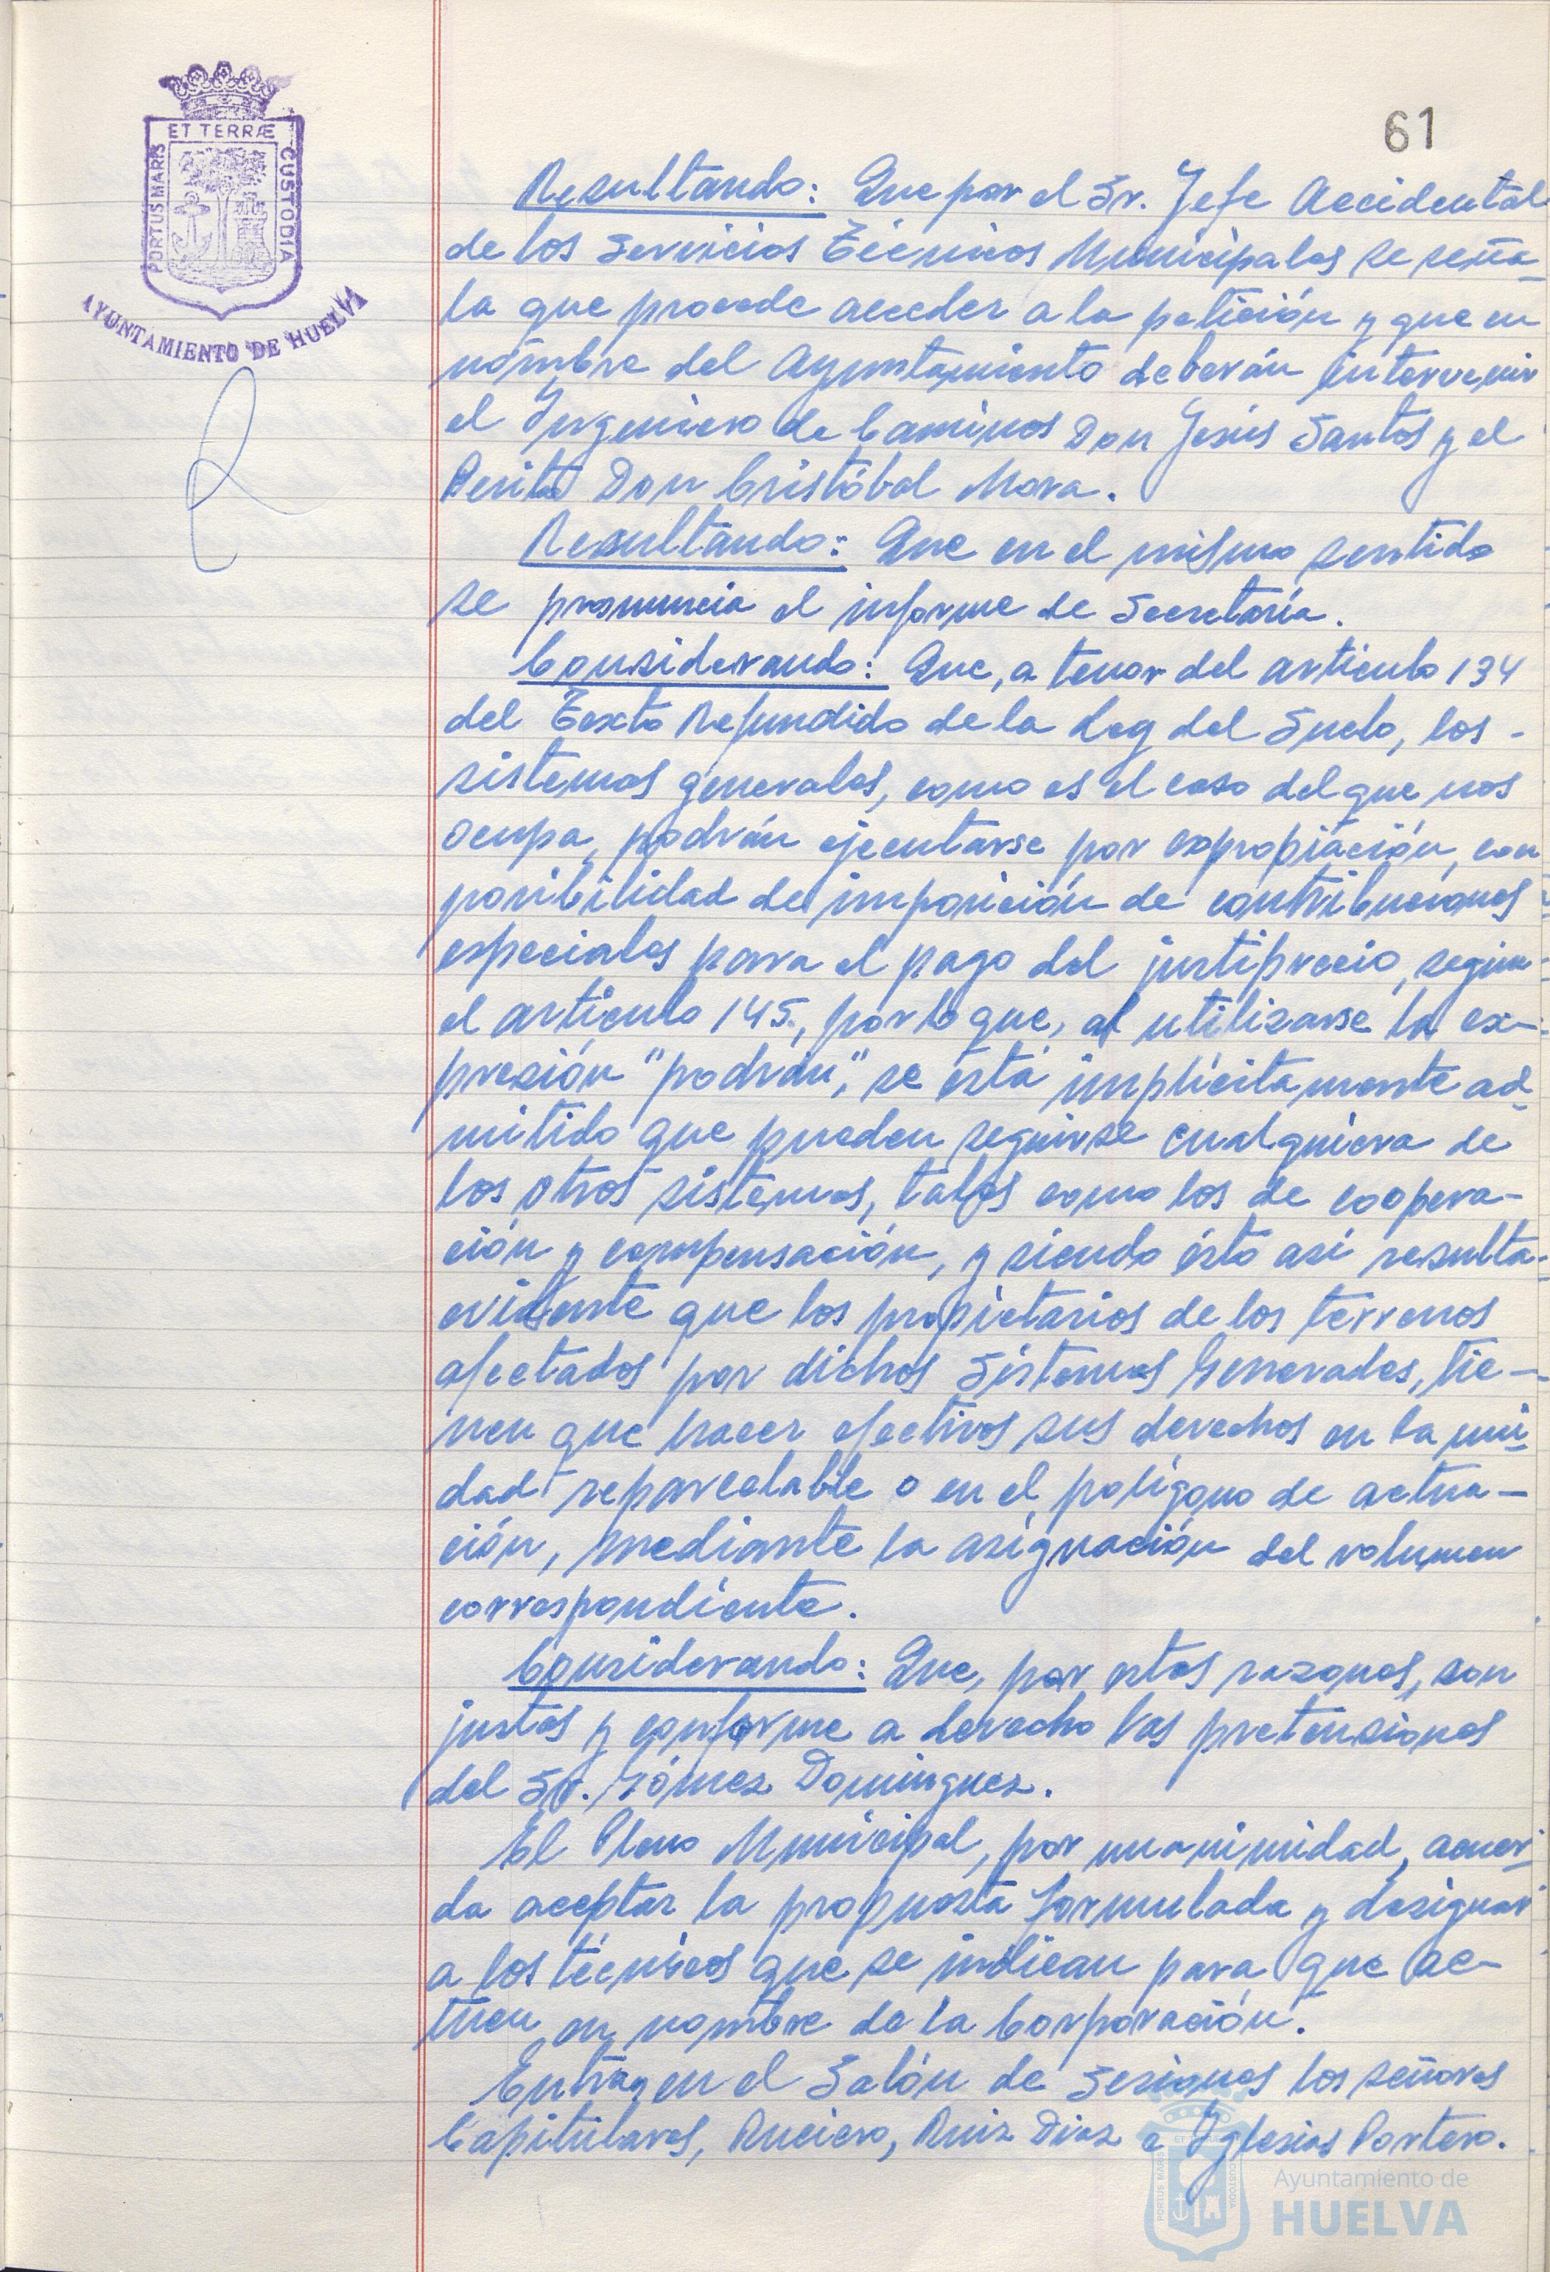 61
ET TERRÆ
PORTUS MARIS
CUSTODIA
AYUNTAMIENTO DE HUELVA
Resultando: Que por el Sr. Jefe Accidental
de los Servicios Técnicos Municipales se seña-
la que procede acceder a la petición y que en
nombre del Ayuntamiento deberán intervenir
el Ingeniero de Caminos Don Jesús Santos y el
Perito Don Cristóbal Mora.
Resultando: Que en el mismo sentido
se pronuncia el informe de Secretaría.
Considerando: Que, a tenor del artículo 134
del Texto Refundido de la Ley del Suelo, los -
sistemas generales, como es el caso del que nos
ocupa, podrán ejecutarse por expropiación, con
posibilidad de imposición de contribuciones
especiales para el pago del justiprecio, según-
el artículo 145, por lo que, al utilizarse la ex-
presión "podrán", se está implícitamente ad-
mitido que pueden seguirse cualquiera de
los otros sistemas, tales como los de coopera-
ción y compensación, y siendo ésto así resulta-
evidente que los propietarios de los terrenos
afectados por dichos Sistemas Generales, tie-
nen que hacer efectivos sus derechos en la uni-
dad reparcelable o en el polígono de actua-
ción, mediante la asignación del volumen
correspondiente.
Considerando: Que, por estas razones, son
justas y conforme a derecho las pretensiones
del Sr. Gómez Domínguez.
El Pleno Municipal, por unanimidad, acuer-
da aceptar la propuesta formulada y designar
a los técnicos que se indican para que ac-
túen en nombre de la Corporación.
Entran en el Salón de Sesiones los señores
Capitulares, Ruciero, Ruiz Diaz e Yglesias Portero.
Ayuntamiento de
HUELVA